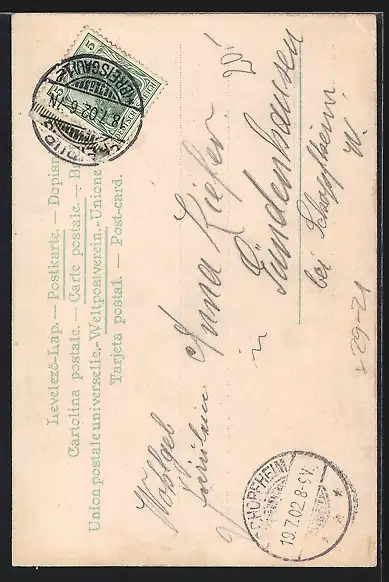 Levelezö-Lap. — Postkarte. — Dopisn
Cartolina postale. — Carte postale. — B
Union postale universelle. — Weltpostverein. — Unione
Tarjeta postal. — Post-card.
5
(BREISGAU)
18.7.02. 6-7N.
Wohlgeb
Fräulein Anna Kiefer
in
Gündenhausen
bei Schopfheim
W.
SCHOPFHEIM
19.7.02. 8-9V.
29-21